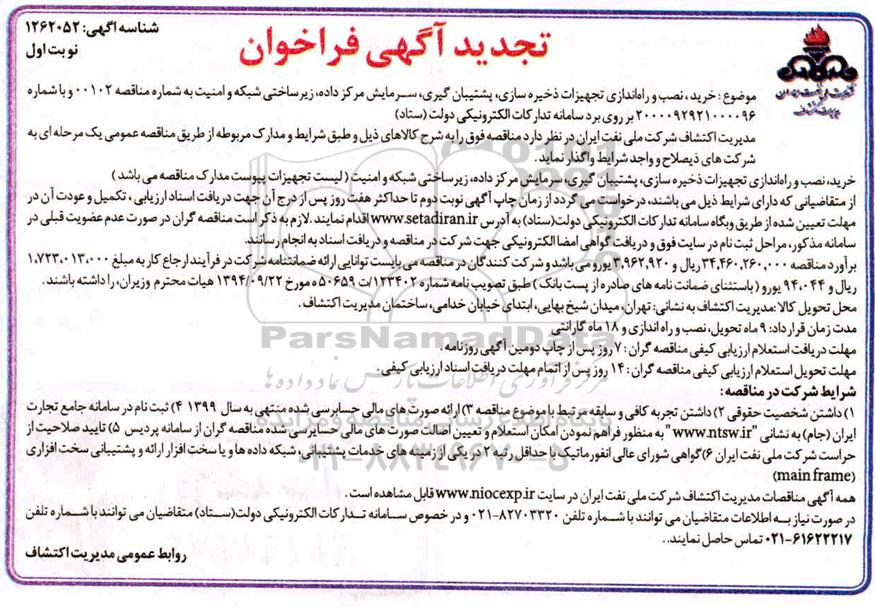 شناسه آگهی: ۱۲۶۲۰۵۲
نوبت اول
تجدید آگهی فراخوان
موضوع : خرید ، نصب و راه‌اندازی تجهیزات ذخیره سازی، پشتیبان گیری، سرمایش مرکز داده، زیرساختی شبکه و امنیت به شماره مناقصه ۰۰۱۰۲ و با شماره
۲۰۰۰۰۹۲۹۲۱۰۰۰۰۹۶ بر روی برد سامانه تدارکات الکترونیکی دولت (ستاد)
مدیریت اکتشاف شرکت ملی نفت ایران در نظر دارد مناقصه فوق را به شرح کالاهای ذیل و طبق شرایط و مدارک مربوطه از طریق مناقصه عمومی یک مرحله ای به
شرکت های ذیصلاح و واجد شرایط واگذار نماید.
خرید، نصب و راه‌اندازی تجهیزات ذخیره سازی، پشتیبان گیری، سرمایش مرکز داده، زیرساختی شبکه و امنیت ( لیست تجهیزات پیوست مدارک مناقصه می باشد )
از متقاضیانی که دارای شرایط ذیل می باشند، درخواست می گردد از زمان چاپ آگهی نوبت دوم تا حداکثر هفت روز پس از درج آن جهت دریافت اسناد ارزیابی ، تکمیل و عودت آن در
مهلت تعیین شده از طریق وبگاه سامانه تدارکات الکترونیکی دولت(ستاد) به آدرس www.setadiran.ir اقدام نمایند. لازم به ذکر است مناقصه گران در صورت عدم عضویت قبلی در
سامانه مذکور، مراحل ثبت نام در سایت فوق و دریافت گواهی امضا الکترونیکی جهت شرکت در مناقصه و دریافت اسناد به انجام رسانند.
برآورد مناقصه ۳۴,۴۶۰,۲۶۰,۰۰۰ ریال و ۳,۹۶۲,۹۲۰ یورو می باشد و شرکت کنندگان در مناقصه می بایست توانایی ارائه ضمانتنامه شرکت در فرآیند ارجاع کار به مبلغ ۱,۷۲۳,۰۱۳,۰۰۰
ریال و ۹۴,۰۴۴ یورو ( باستثنای ضمانت نامه های صادره از پست بانک ) طبق تصویب نامه شماره ۱۲۳۴۰۲/ت ۵۰۶۵۹ ه مورخ ۱۳۹۴/۰۹/۲۲ هیات محترم وزیران، را داشته باشند.
محل تحویل کالا :مدیریت اکتشاف به نشانی: تهران، میدان شیخ بهایی، ابتدای خیابان خدامی، ساختمان مدیریت اکتشاف.
مدت زمان قرارداد: ۹ ماه تحویل، نصب و راه اندازی و ۱۸ ماه گارانتی
مهلت دریافت استعلام ارزیابی کیفی مناقصه گران : ۷ روز پس از چاپ دومین آگهی روزنامه.
مهلت تحویل استعلام ارزیابی کیفی مناقصه گران : ۱۴ روز پس از اتمام مهلت دریافت اسناد ارزیابی کیفی.
شرایط شرکت در مناقصه:
۱) داشتن شخصیت حقوقی ۲) داشتن تجربه کافی و سابقه مرتبط با موضوع مناقصه ۳) ارائه صورت های مالی حسابرسی شده منتهی به سال ۱۳۹۹ ۴) ثبت نام در سامانه جامع تجارت
ایران (جام) به نشانی "www.ntsw.ir" به منظور فراهم نمودن امکان استعلام و تعیین اصالت صورت های مالی حسابرسی شده مناقصه گران از سامانه پردیس ۵) تایید صلاحیت از
حراست شرکت ملی نفت ایران ۶) گواهی شورای عالی انفورماتیک با حداقل رتبه ۲ در یکی از زمینه های خدمات پشتیبانی، شبکه داده ها و یا سخت افزار ارائه و پشتیبانی سخت افزاری
(main frame)
همه آگهی مناقصات مدیریت اکتشاف شرکت ملی نفت ایران در سایت www.niocexp.ir قابل مشاهده است.
در صورت نیاز به اطلاعات متقاضیان می توانند با شماره تلفن ۸۲۷۰۳۳۲۰-۰۲۱ و در خصوص سامانه تدارکات الکترونیکی دولت(ستاد) متقاضیان می توانند با شماره تلفن
۰۲۱-۶۱۶۲۲۲۱۷ تماس حاصل نمایند..
روابط عمومی مدیریت اکتشاف
ParsNamadData